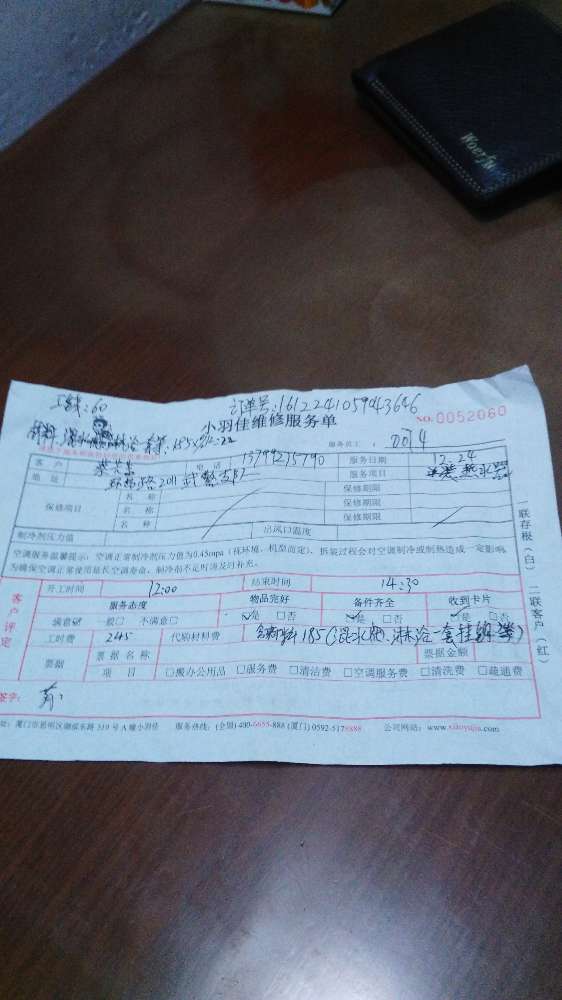 Woerfu
工钱:60
订单号:161224105943646
小羽佳维修服务单
NO.0052060
材料
服务员工:
客户
电话
13799275790
服务日期
12.24
地址
环岛路2011
服务项目
热水器
保修项目
名称
保修期限
名称
保修期限
名称
保修期限
制冷剂压力值
出风口温度
空调服务温馨提示:空调正常制冷剂压力值为0.45mpa(视环境、机型而定),拆装过程会对空调制冷或制热造成一定影响,
为确保空调正常使用延长空调寿命,制冷剂不足时请及时补充。
客户评定
开工时间
12:00
结束时间
14:30
服务态度
物品完好
备件齐全
收到卡片
满意 一般□ 不满意□
是 □否
是 □否
是 □否
工时费
245
代购材料费
185
票据
票据名称
票据金额
项目
□搬办公用品 □服务费 □清洁费 □空调服务费 □清洗费 □疏通费
签字:
址:厦门市思明区湖滨东路319号A幢小羽佳 服务热线:(全国)400-6655-888 (厦门)0592-5178888 公司网站:www.xiaoyujia.com
一联存根(白) 二联客户(红)